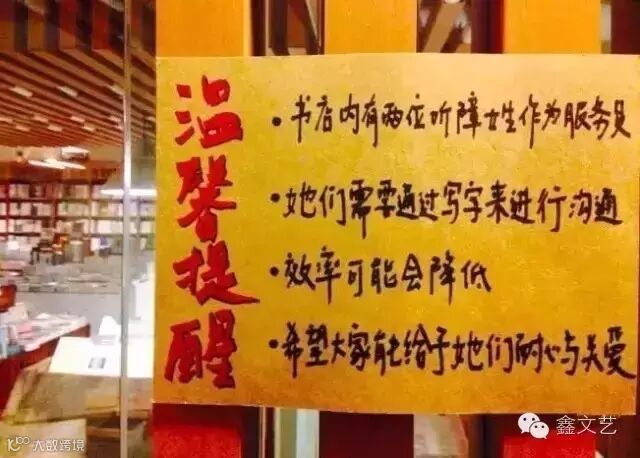 温馨提醒
• 书店内有两位听障女生作为服务员
• 她们需要通过写字来进行沟通
• 效率可能会降低
• 希望大家能给予她们耐心与关爱
鑫文艺
大数跨境